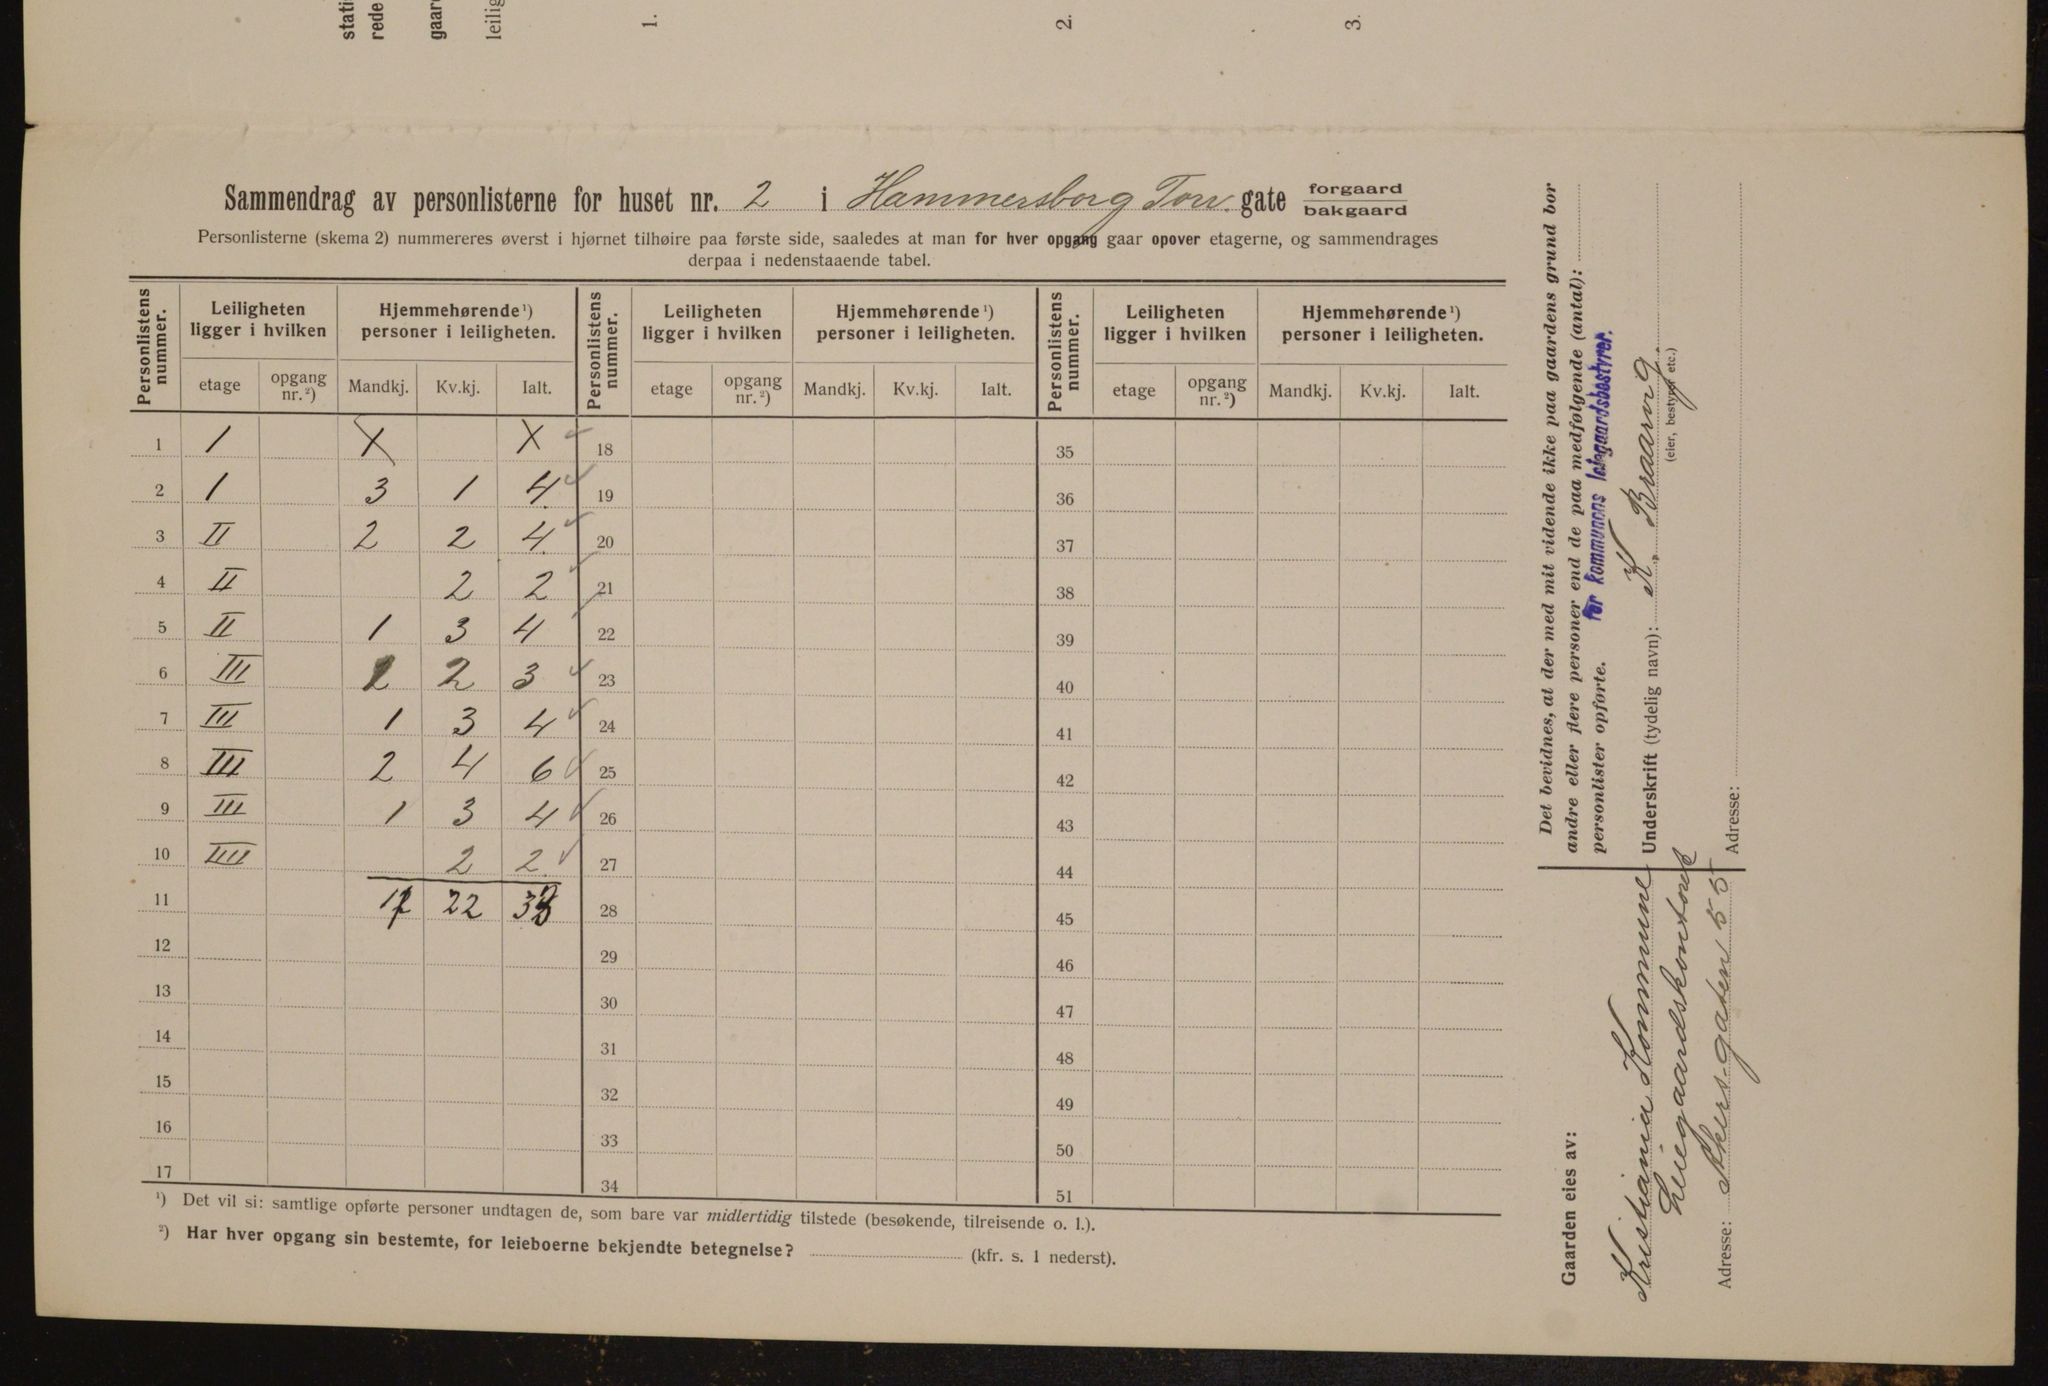 stati
rede
gaard
leilig
1.
2.
3.
Sammendrag av personlisterne for huset nr. 2 i Hammersborg Torv. gate forgaard
bakgaard
Personlisterne (skema 2) nummereres øverst i hjørnet tilhøire paa første side, saaledes at man for hver opgang gaar opover etagerne, og sammendrages
derpaa i nedenstaaende tabel.
Personlistens nummer. Leiligheten ligger i hvilken Hjemmehørende¹) personer i leiligheten. Personlistens nummer. Leiligheten ligger i hvilken Hjemmehørende¹) personer i leiligheten. Personlistens nummer. Leiligheten ligger i hvilken Hjemmehørende¹) personer i leiligheten.
etage opgang nr.²) Mandkj. Kv.kj. Ialt. etage opgang nr.²) Mandkj. Kv.kj. Ialt. etage opgang nr.²) Mandkj. Kv.kj. Ialt.
1 I X X 18 35
2 I 3 1 4 19 36
3 II 2 2 4 20 37
4 II 2 2 21 38
5 II 1 3 4 22 39
6 III 2 3 23 40
7 III 1 3 4 24 41
8 III 2 4 6 25 42
9 III 1 3 4 26 43
10 IIII 2 2 27 44
11 22 28 45
12 29 46
13 30 47
14 31 48
15 32 49
16 33 50
17 34 51
¹) Det vil si: samtlige opførte personer undtagen de, som bare var midlertidig tilstede (besøkende, tilreisende o. l.).
²) Har hver opgang sin bestemte, for leieboerne bekjendte betegnelse? (kfr. s. 1 nederst).
Det bevidnes, at der med mit vidende ikke paa gaardens grund bor
andre eller flere personer end de paa medfølgende (antal):
personlister opførte. for kommunens leiegaardsbestyrer.
Underskrift (tydelig navn): K. Braarvig.
(eier, bestyrer etc.)
Adresse:
Gaarden eies av:
Kristiania Kommune
Leiegaardskontoret
Adresse: Akersgaten 55